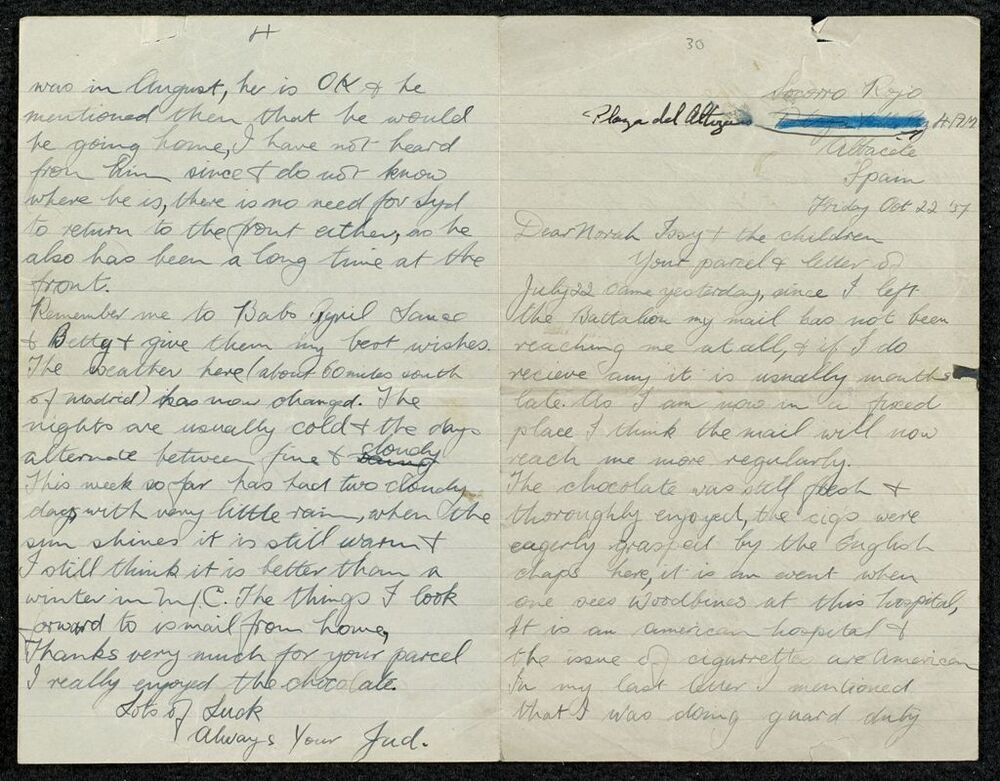 4
was in August, he is OK & he
mentioned then that he would
be going home, I have not heard
from him since & do not know
where he is, there is no need for Syd
to return to the front either, as he
also has been a long time at the
front.
Remember me to Babs April
& Betty & give them my best wishes.
The weather here (about 60 miles south
of madrid) has now changed. The
nights are usually cold & the days
alternate between fine & cloudy
This week so far has had two cloudy
days with very little rain, when the
sun shines it is still warm &
I still think it is better than a
winter in M/C. The things I look
forward to is mail from home,
Thanks very much for your parcel
I really enjoyed the chocolate.
Lots of Luck
Always Your Jud.
30
Socorro Rojo
Plaza del Altozano
Albacete
Spain
Friday Oct 22 '37
Dear Norah Issy & the children
Your parcel & letter of
July 22 came yesterday, since I left
the Battalion my mail has not been
reaching me at all, & if I do
recieve any it is usually months
late. As I am now in a fixed
place I think the mail will now
reach me more regularly.
The chocolate was still fresh &
thoroughly enjoyed, the cigs were
eagerly grasped by the English
chaps here, it is an event when
one sees Woodbines at this hospital,
It is an american hospital &
the issue of cigarrette are American
In my last letter I mentioned
that I was doing guard duty